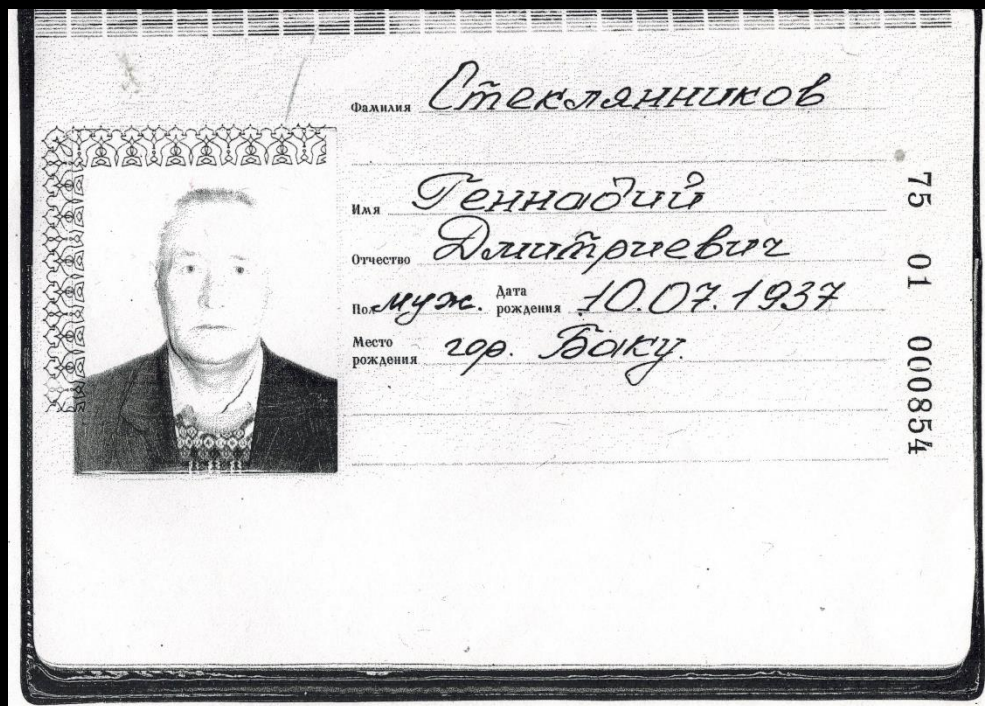 Фамилия Стеклянников
Имя Геннадий
Отчество Дмитриевич
Пол муж. Дата рождения 10.07.1937
Место рождения гор. Баку.
75 01 000854